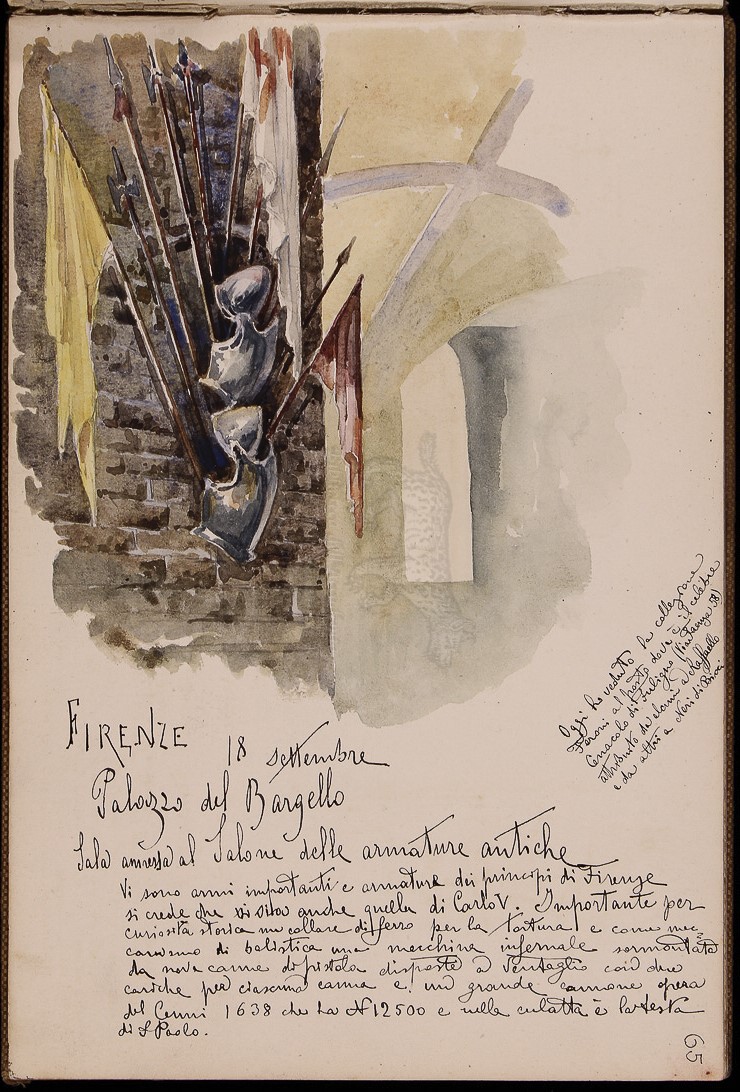 FIRENZE 18 settembre
Palazzo del Bargello
Sala annessa al Salone delle armature antiche
Vi sono armi importanti e armature dei principi di Firenze
si crede che vi sia anche quella di Carlo V. Importante per
curiosità storica un collare di ferro per la tortura e come mec
canismo di balistica una macchina infernale sormontata
da nove canne di pistola disposte a ventaglio con due
cariche per ciascuna canna e un grande cannone opera
del Cenni 1638 che ha N 12500 e nella culatta è la testa
di S Paolo.
Oggi ho veduto la collezione
Feroni al posto dove è il celebre
Cenacolo di Fuligno (Via Faenza 58)
attribuito da alcuni a Raffaello
e da altri a Neri di Bicci
65